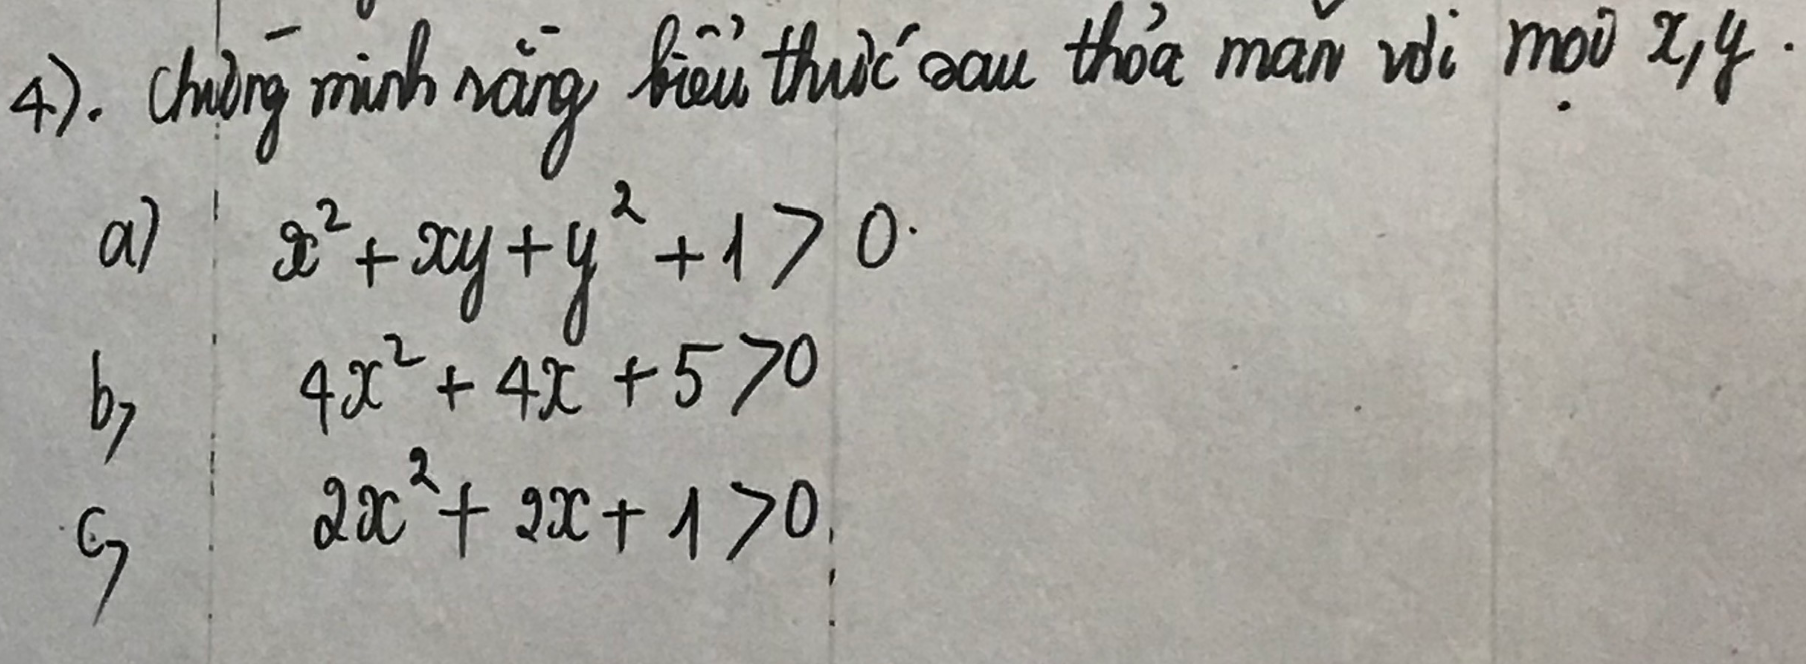 4). Chứng minh rằng biểu thức sau thỏa mãn với mọi x, y.
a) x² + xy + y² + 1 > 0.
b, 4x² + 4x + 5 > 0
c, 2x² + 2x + 1 > 0.